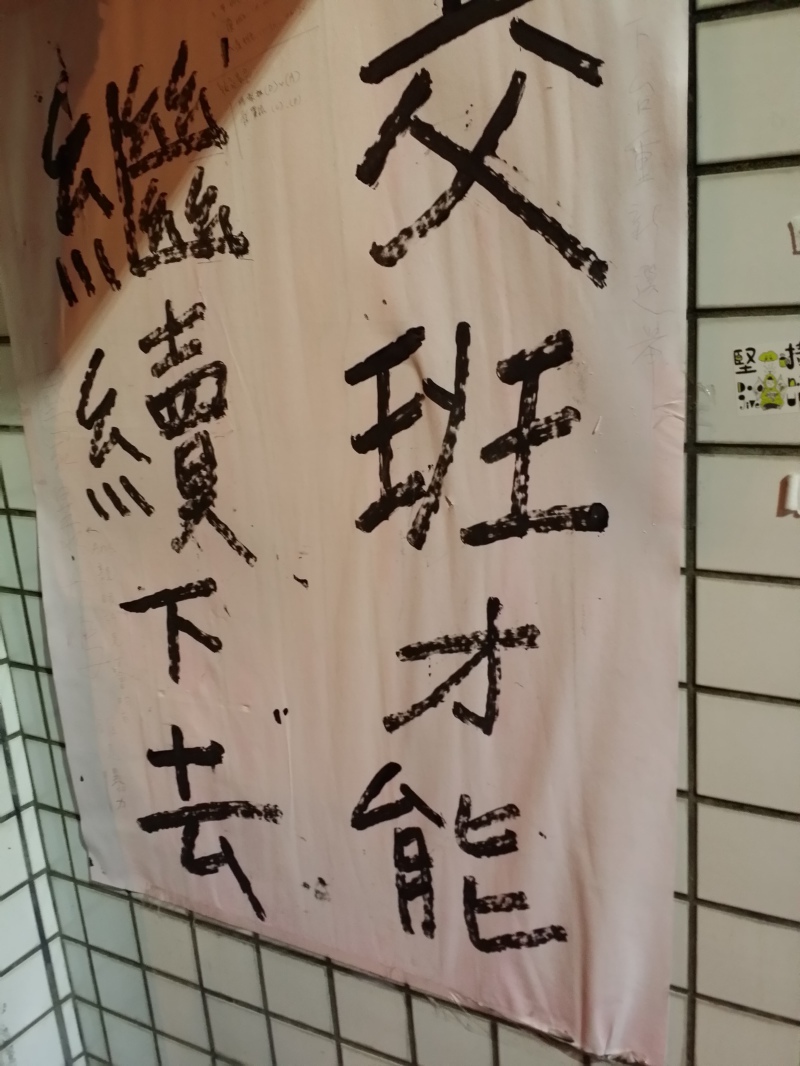 交班才能
繼續下去
堅持